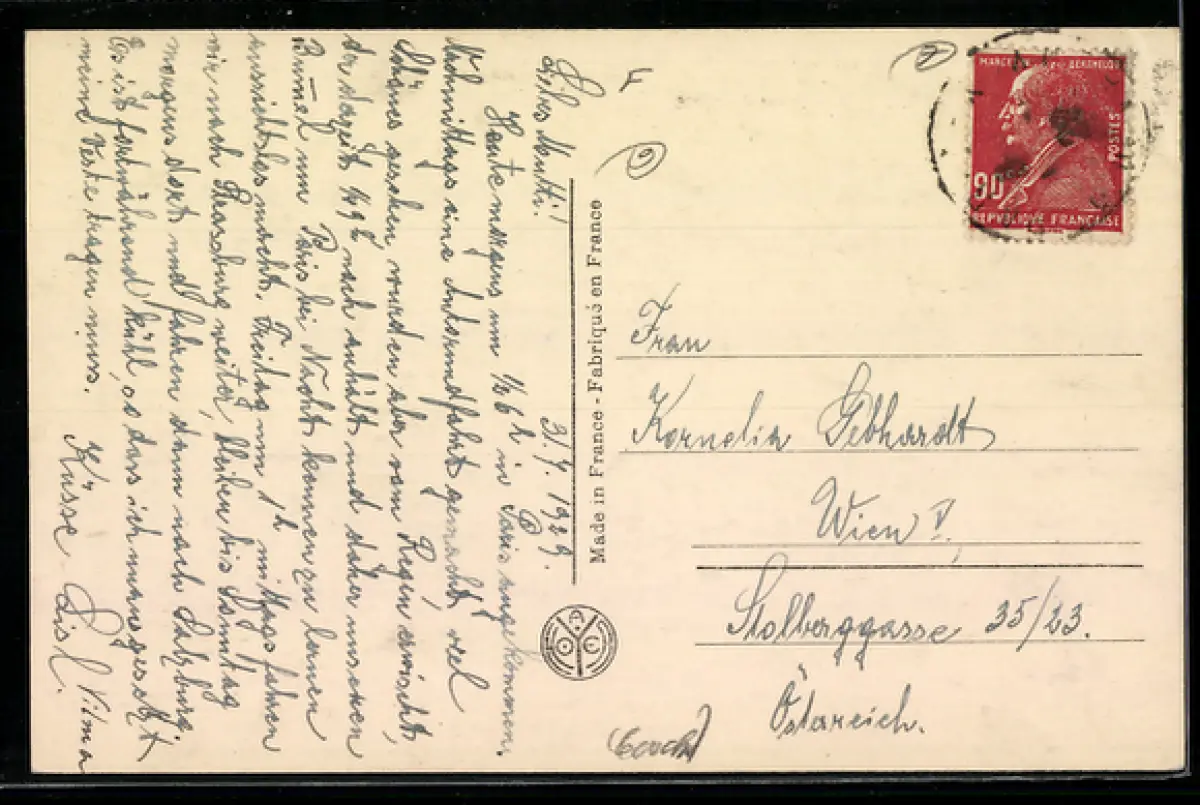 Liebes Mutti!
31.7.1929.
Heute morgens um 1/2 6 h in Paris angekommen.
Vormittags eine Autorundfahrt gemacht, viel
Schönes gesehen wurden aber vom Regen erwischt,
der derzeit 1/4 9 h noch anhält und daher unseren
Bummel um Paris bei Nacht kennen zu lernen
aussichtslos macht. Freitag um 1 h mittags fahren
wir nach Strassburg weiter, bleiben bis Sonntag
morgens dort und fahren dann nach Salzburg.
Es ist fortwährend kühl, so dass ich unausgesetzt
meine Weste tragen muss.
Küsse Lisl. Vilma
Made in France - Fabriqué en France
A
O C
MARCELIN BERTHELOT
POSTES
90
REPVBLIQVE FRANÇAISE
Frau
Kornelia Gebhardt
Wien V,
Stolberggasse 35/23.
Östereich.